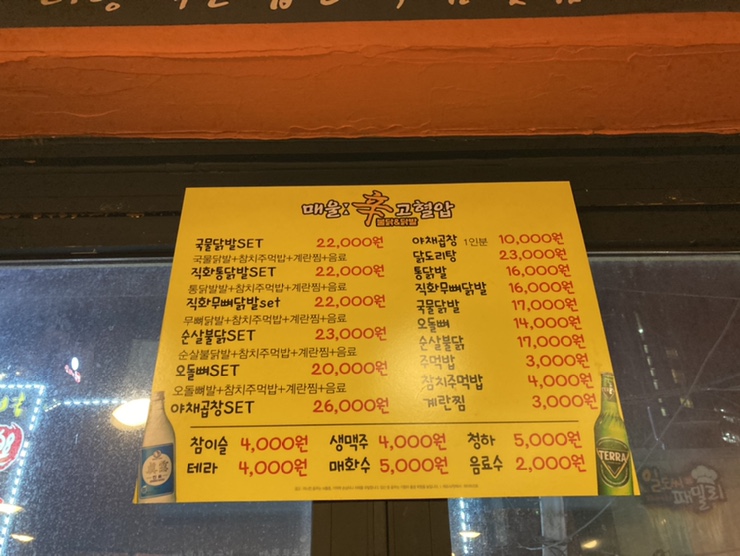 매울: 辛 고혈압
불닭&닭발
국물닭발SET 22,000원
국물닭발+참치주먹밥+계란찜+음료
직화통닭발SET 22,000원
통닭발발+참치주먹밥+계란찜+음료
직화무뼈닭발set 22,000원
무뼈닭발+참치주먹밥+계란찜+음료
순살불닭SET 23,000원
순살불닭+참치주먹밥+계란찜+음료
오돌뼈SET 20,000원
오돌뼈발+참치주먹밥+계란찜+음료
야채곱창SET 26,000원
야채곱창 1인분 10,000원
닭도리탕 23,000원
통닭발 16,000원
직화무뼈닭발 16,000원
국물닭발 17,000원
오돌뼈 14,000원
순살불닭 17,000원
주먹밥 3,000원
참치주먹밥 4,000원
계란찜 3,000원
참이슬 4,000원 생맥주 4,000원 청하 5,000원
테라 4,000원 매화수 5,000원 음료수 2,000원
眞露
TERRA
패밀리